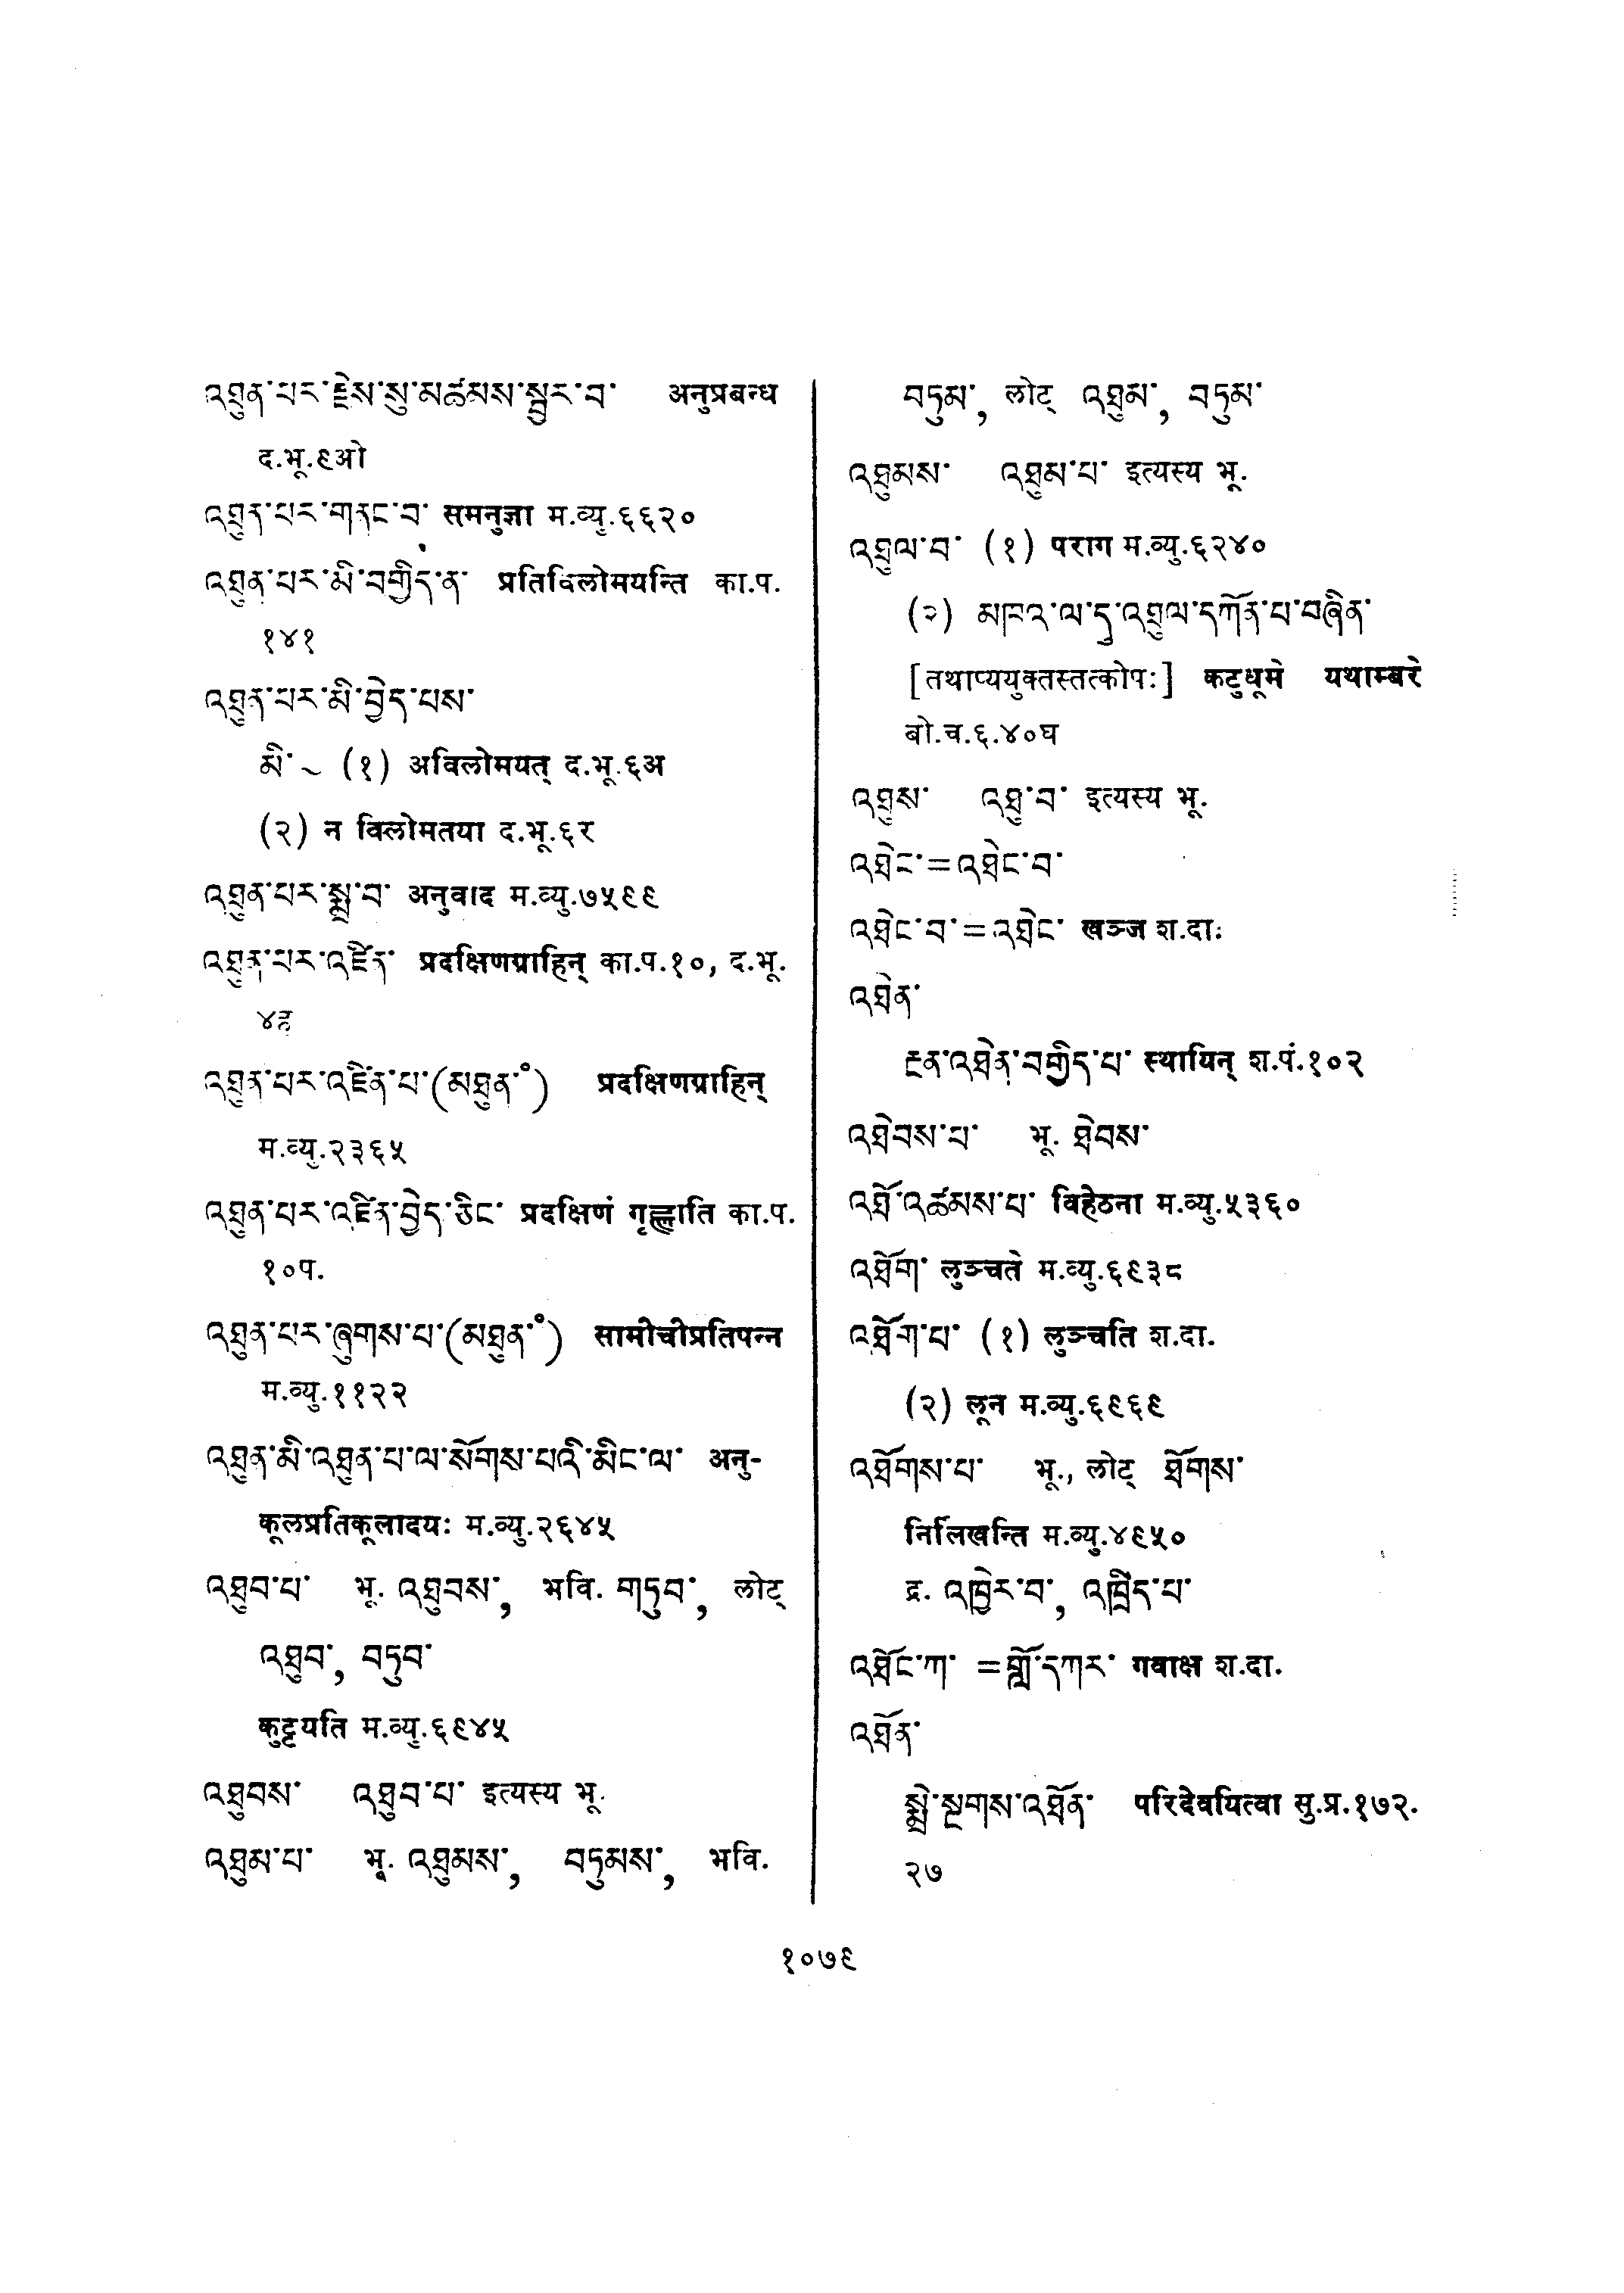 འཐུན་པར་རྗེས་སུ་མཚམས་སྦྱར་བ་ अनुप्रबन्ध
द.भू.९ओ
འཐུན་པར་གནང་བ་ समनुज्ञा म.व्यु.६६२०
འཐུན་པར་མི་བགྱིད་ན་ प्रतिविलोमयन्ति का.प.
१४१
འཐུན་པར་མི་བྱེད་པས་
མི་ ~ (१) अविलोमयत् द.भू.६अ
(२) न विलोमतया द.भू.६र
འཐུན་པར་སྨྲ་བ་ अनुवाद म.व्यु.७५९९
འཐུན་པར་འཛིན་ प्रदक्षिणग्राहिन् का.प.१०, द.भू.
འཐུན་པར་འཛིན་པ་(མཐུན་ं) प्रदक्षिणग्राहिन्
म.व्यु.२३६५
འཐུན་པར་འཛིན་བྱེད་ཅིང་ प्रदक्षिणं गृह्णाति का.प.
१०प.
འཐུན་པར་ཞུགས་པ་(མཐུན་ं) सामीचीप्रतिपन्न
म.व्यु.११२२
འཐུན་མི་འཐུན་པ་ལ་སོགས་པའི་མིང་ལ་ अनु-
कूलप्रतिकूलादयः म.व्यु.२६४५
འཐུབ་པ་ भू. འཐུབས་, भवि. གཏུབ་, लोट्
འཐུབ་, བཏུབ་
कुट्टयति म.व्यु.६९४५
འཐུབས་ འཐུབ་པ་ इत्यस्य भू.
འཐུམ་པ་ भू. འཐུམས་, བཏུམས་, भवि.
བཏུམ་, लोट् འཐུམ་, བཏུམ་
འཐུམས་ འཐུམ་པ་ इत्यस्य भू.
འཐུལ་བ་ (१) पराग म.व्यु.६२४०
(२) མཁའ་ལ་དུ་འཐུལ་དཀོན་པ་བཞིན་
[तथाप्ययुक्तस्तत्कोपः] कटुधूमे यथाम्बरे
बो.च.६.४०घ
འཐུས་ འཐུ་བ་ इत्यस्य भू.
འཐེང་=འཐེང་བ་
འཐེང་བ་=འཐེང་ खञ्ज श.दाः
འཐེན་
རྔན་འཐེན་བགྱིད་པ་ स्थायिन् श.पं.१०२
འཐེབས་པ་ भू. ཐེབས་
འཐོ་འཚམས་པ་ विहेठना म.व्यु.५३६०
འཐོག་ लुञ्चते म.व्यु.६९३८
འཐོག་པ་ (१) लुञ्चति श.दा.
(२) लून म.व्यु.६९६९
འཐོགས་པ་ भू., लोट् ཐོགས་
निर्लिखन्ति म.व्यु.४९५०
द्र. འཁྱེར་བ་, འཁྲིད་པ་
འཐོང་ཀ་ =གློ་དཀར་ गवाक्ष श.दा.
འཐོན་
སྨྲེ་སྔགས་འཐོན་ परिदेवयित्वा सु.प्र.१७२.
२७
१०७९